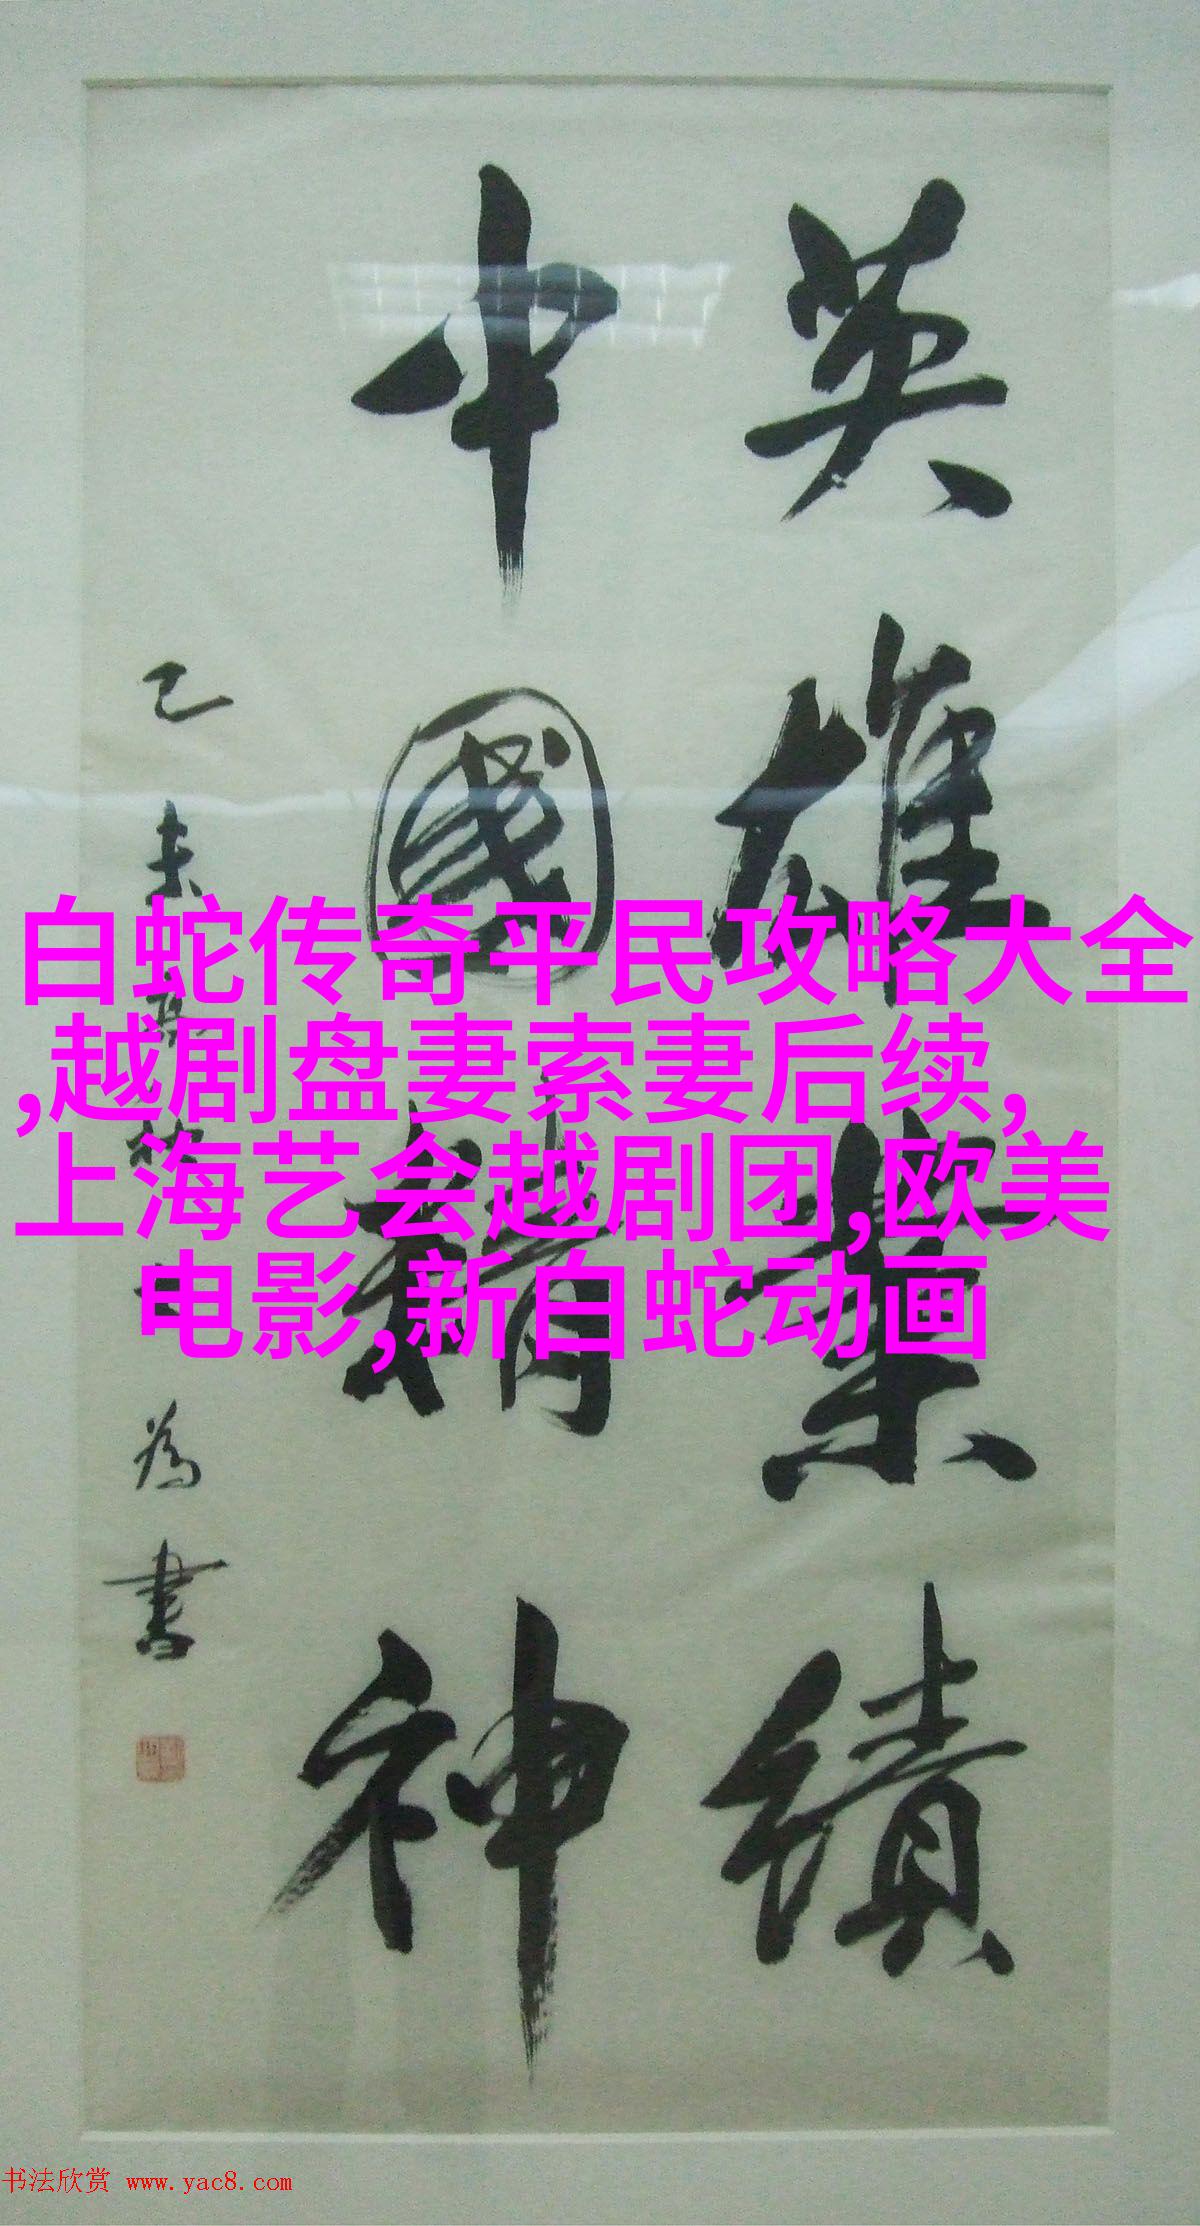 英雄業績
中國精神
乙未
為書
白蛇传奇平民攻略大全
,越剧盘妻索妻后续,
上海艺会越剧团,欧美
电影,新白蛇动画
书法欣赏 www.yac8.com